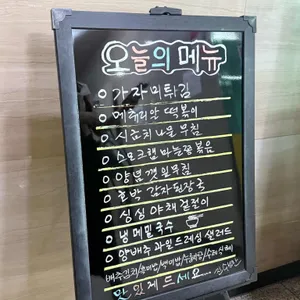 오늘의 메뉴
ㅇ 가자미튀김
ㅇ 메추리알 떡볶이
ㅇ 시금치나물 무침
ㅇ 스모크햄 마늘쫑 볶음
ㅇ 양념 깻잎무침
ㅇ 호박 감자된장국
ㅇ 싱싱 야채 겉절이
ㅇ 냉메밀국수
ㅇ 양배추 과일드레싱 샐러드
배추김치/흰미밥/
맛있게 드세요...